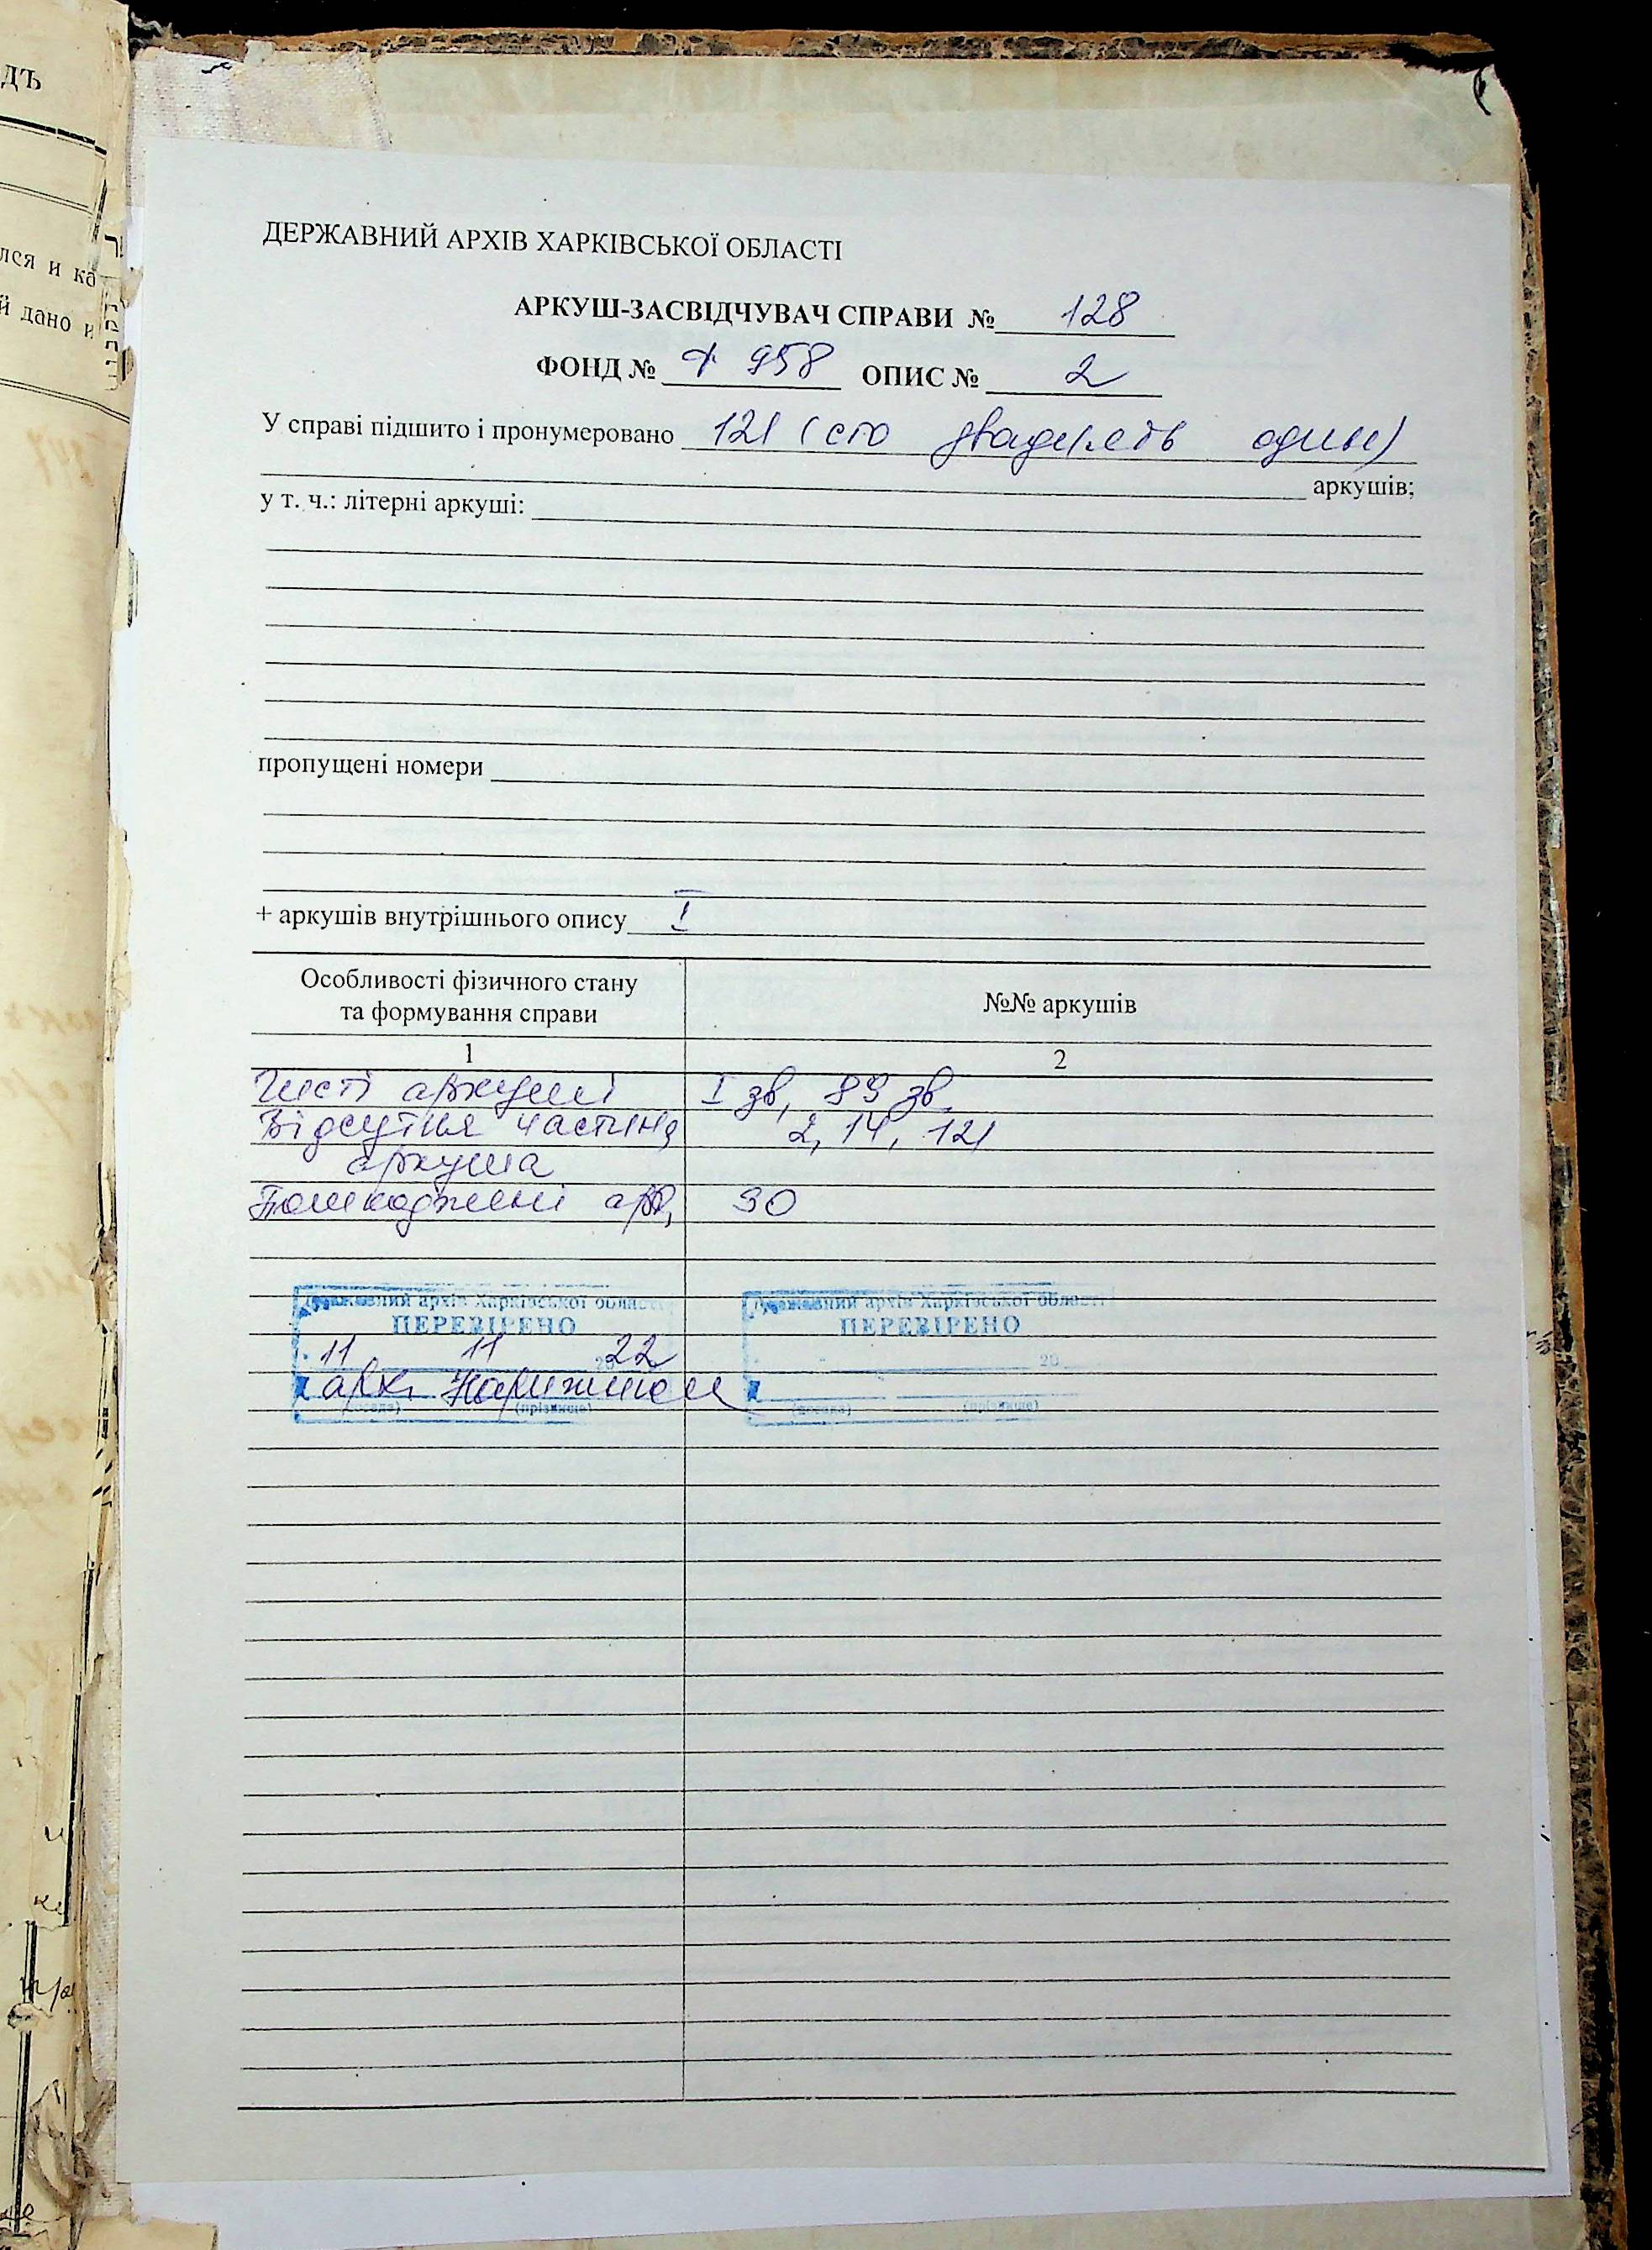 ДЕРЖАВНИЙ АРХІВ ХАРКІВСЬКОЇ ОБЛАСТІ
АРКУШ-ЗАСВІДЧУВАЧ СПРАВИ № 128
ФОНД № 958 ОПИС № 2
У справі підшито і пронумеровано 121 (сто двадцять один)
аркушів;
у т. ч.: літерні аркуші:
пропущені номери
+ аркушів внутрішнього опису I
Особливості фізичного стану
та формування справи
№№ аркушів
1 2
Чисті аркуші I зв, 89 зв.
Відсутня частина 2, 14, 121
аркуша
Пошкоджені арк, 90
Державний архів Харківської області
ПЕРЕВІРЕНО
11 11 2022
арх.
(посада) (прізвище)
Державний архів Харківської області
ПЕРЕВІРЕНО
20
(посада) (прізвище)
дъ
лся и ка
й дано и